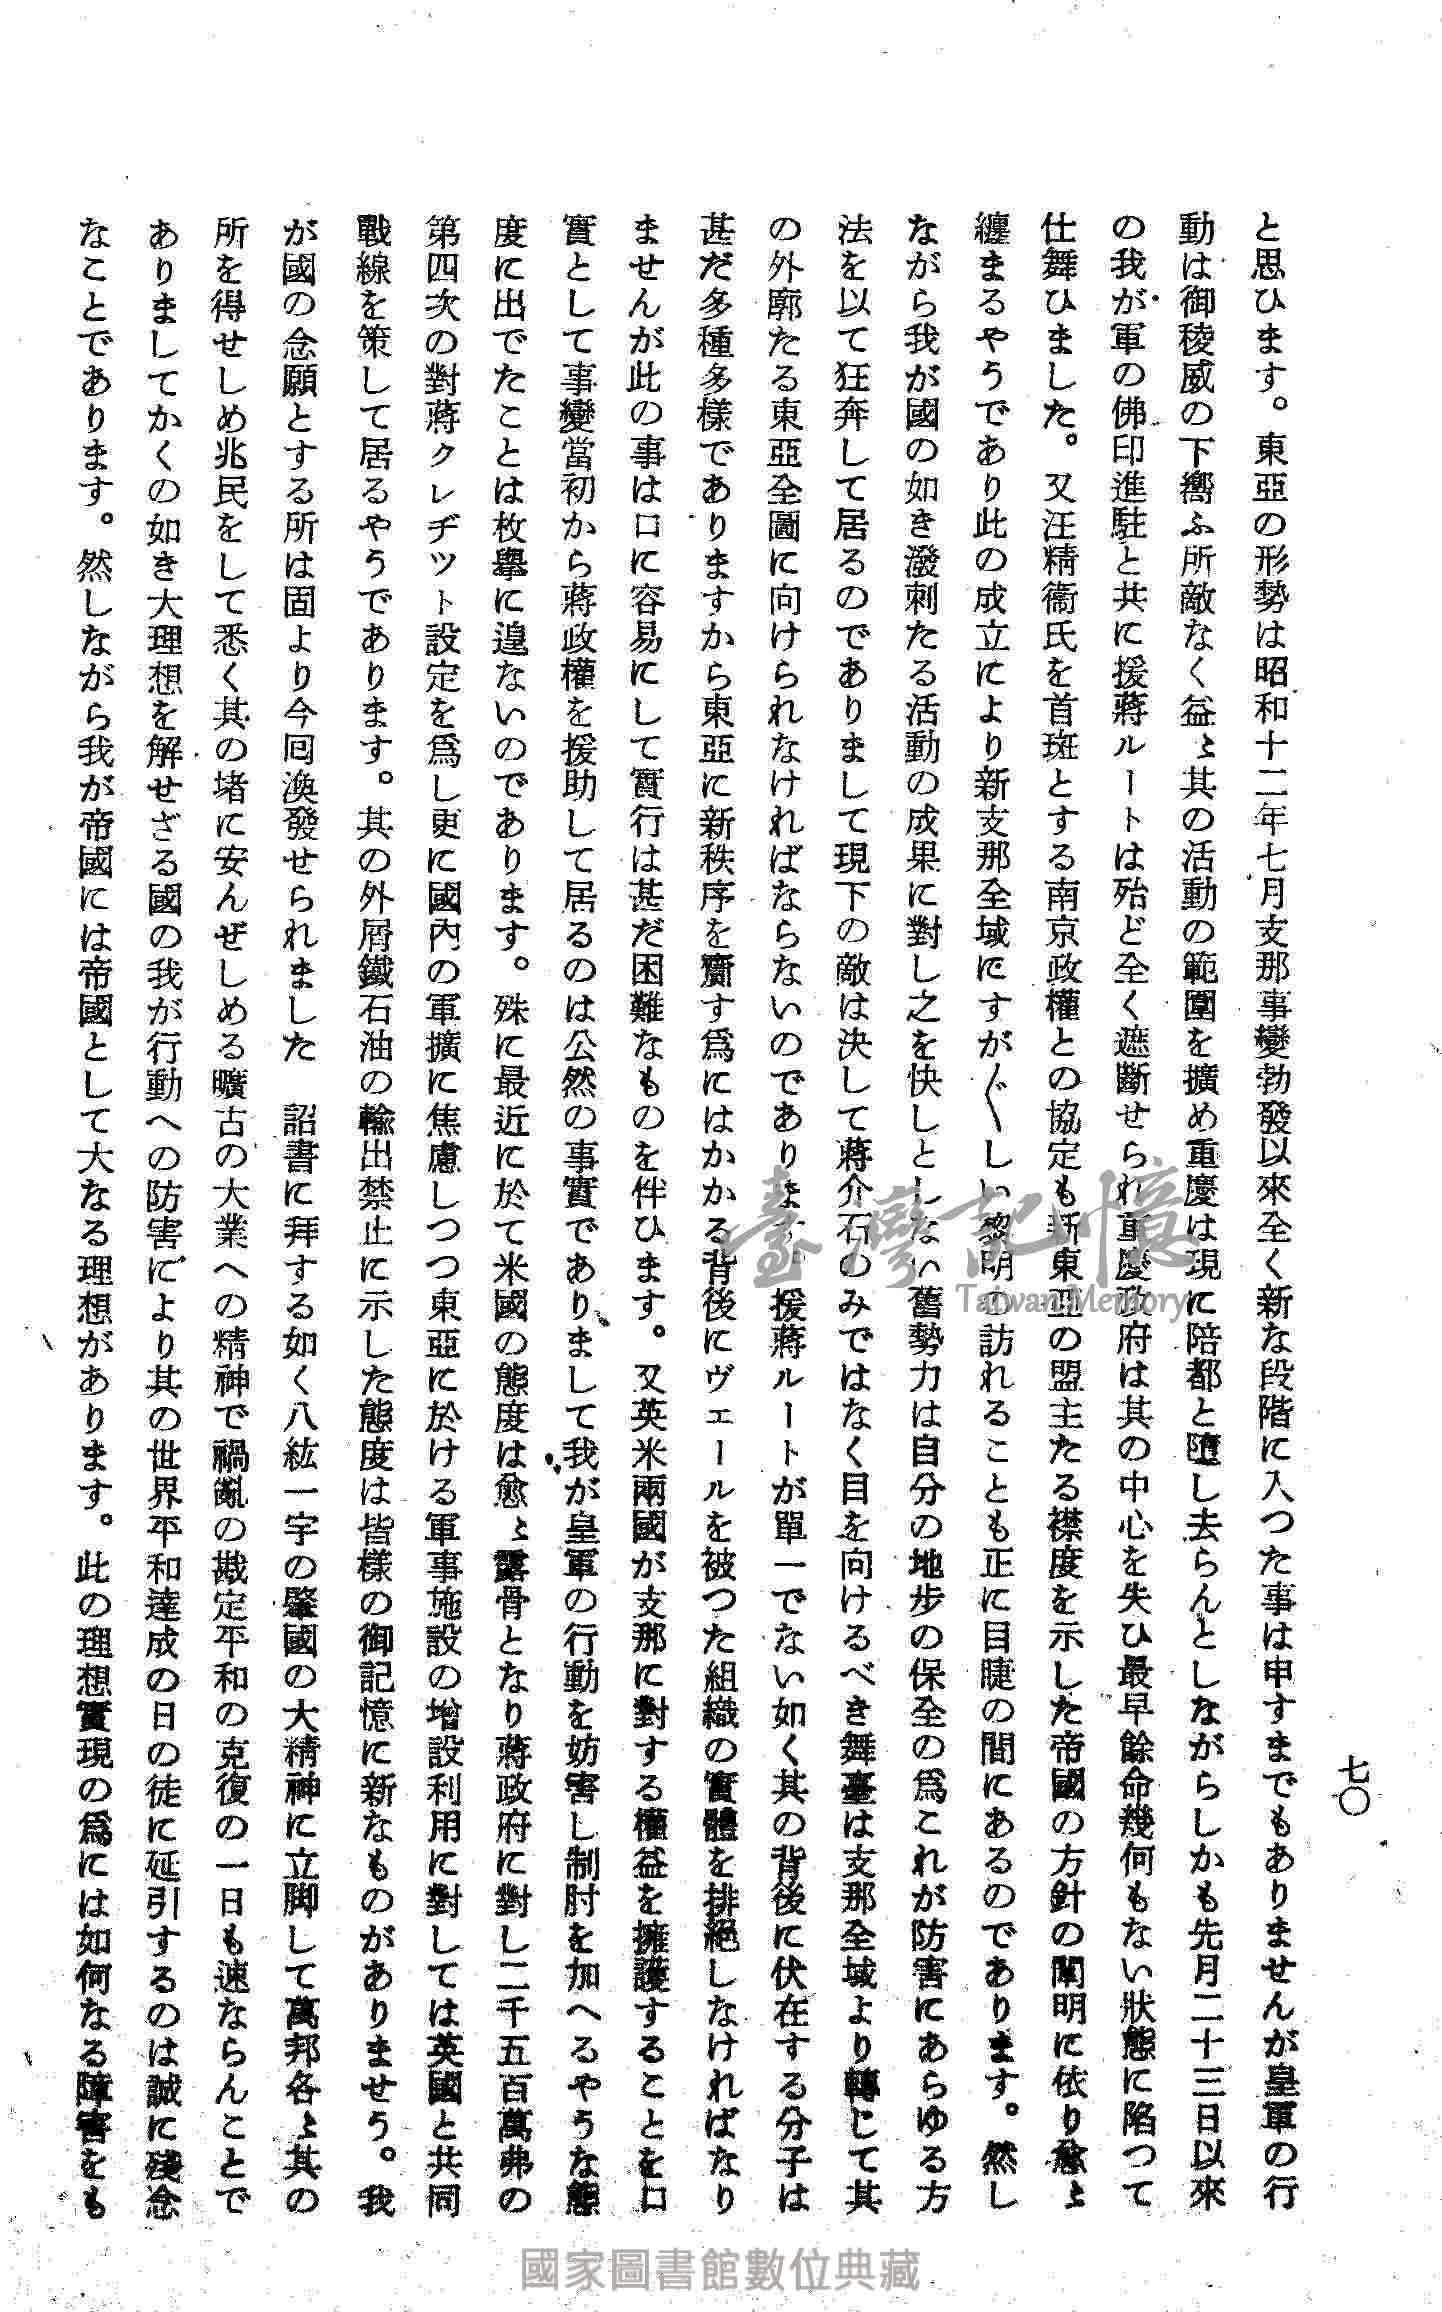 七〇
と思ひます。東亞の形勢は昭和十二年七月支那事變勃發以來全く新な段階に入つた事は申すまでもありませんが皇軍の行
動は御稜威の下嚮ふ所敵なく益〻其の活動の範圍を擴め重慶は現に陪都と墮し去らんとしながらしかも先月二十三日以來
の我が軍の佛印進駐と共に援蔣ルートは殆ど全く遮斷せられ重慶政府は其の中心を失ひ最早餘命幾何もない狀態に陷つて
仕舞ひました。又汪精衞氏を首班とする南京政權との協定も新東亞の盟主たる襟度を示した帝國の方針の闡明に依り愈〻
纏まるやうであり此の成立により新支那全域にすが〲しい黎明の訪れることも正に目睫の間にあるのであります。然し
ながら我が國の如き潑剌たる活動の成果に對し之を快しとしない舊勢力は自分の地步の保全の爲これが防害にあらゆる方
法を以て狂奔して居るのでありまして現下の敵は決して蔣介石のみではなく目を向けるべき舞臺は支那全域より轉じて其
の外廓たる東亞全圖に向けられなければならないのであります。援蔣ルートが單一でない如く其の背後に伏在する分子は
甚だ多種多樣でありますから東亞に新秩序を齎す爲にはかかる背後にヴェールを被つた組織の實體を排絕しなければなり
ませんが此の事は口に容易にして實行は甚だ困難なものを伴ひます。又英米兩國が支那に對する權益を擁護することを口
實として事變當初から蔣政權を援助して居るのは公然の事實でありまして我が皇軍の行動を妨害し制肘を加へるやうな態
度に出でたことは枚擧に遑ないのであります。殊に最近に於て米國の態度は愈〻露骨となり蔣政府に對し二千五百萬弗の
第四次の對蔣クレヂツト設定を爲し更に國內の軍擴に焦慮しつつ東亞に於ける軍事施設の增設利用に對しては英國と共同
戰線を策して居るやうであります。其の外屑鐵石油の輸出禁止に示した態度は皆樣の御記憶に新なものがありませう。我
が國の念願とする所は固より今回渙發せられました　詔書に拜する如く八紘一宇の肇國の大精神に立脚して萬邦各〻其の
所を得せしめ兆民をして悉く其の堵に安んぜしめる曠古の大業への精神で禍亂の戡定平和の克復の一日も速ならんことで
ありましてかくの如き大理想を解せざる國の我が行動への防害により其の世界平和達成の日の徒に延引するのは誠に殘念
なことであります。然しながら我が帝國には帝國として大なる理想があります。此の理想實現の爲には如何なる障害をも
臺灣記憶
Taiwan Memory
國家圖書館數位典藏